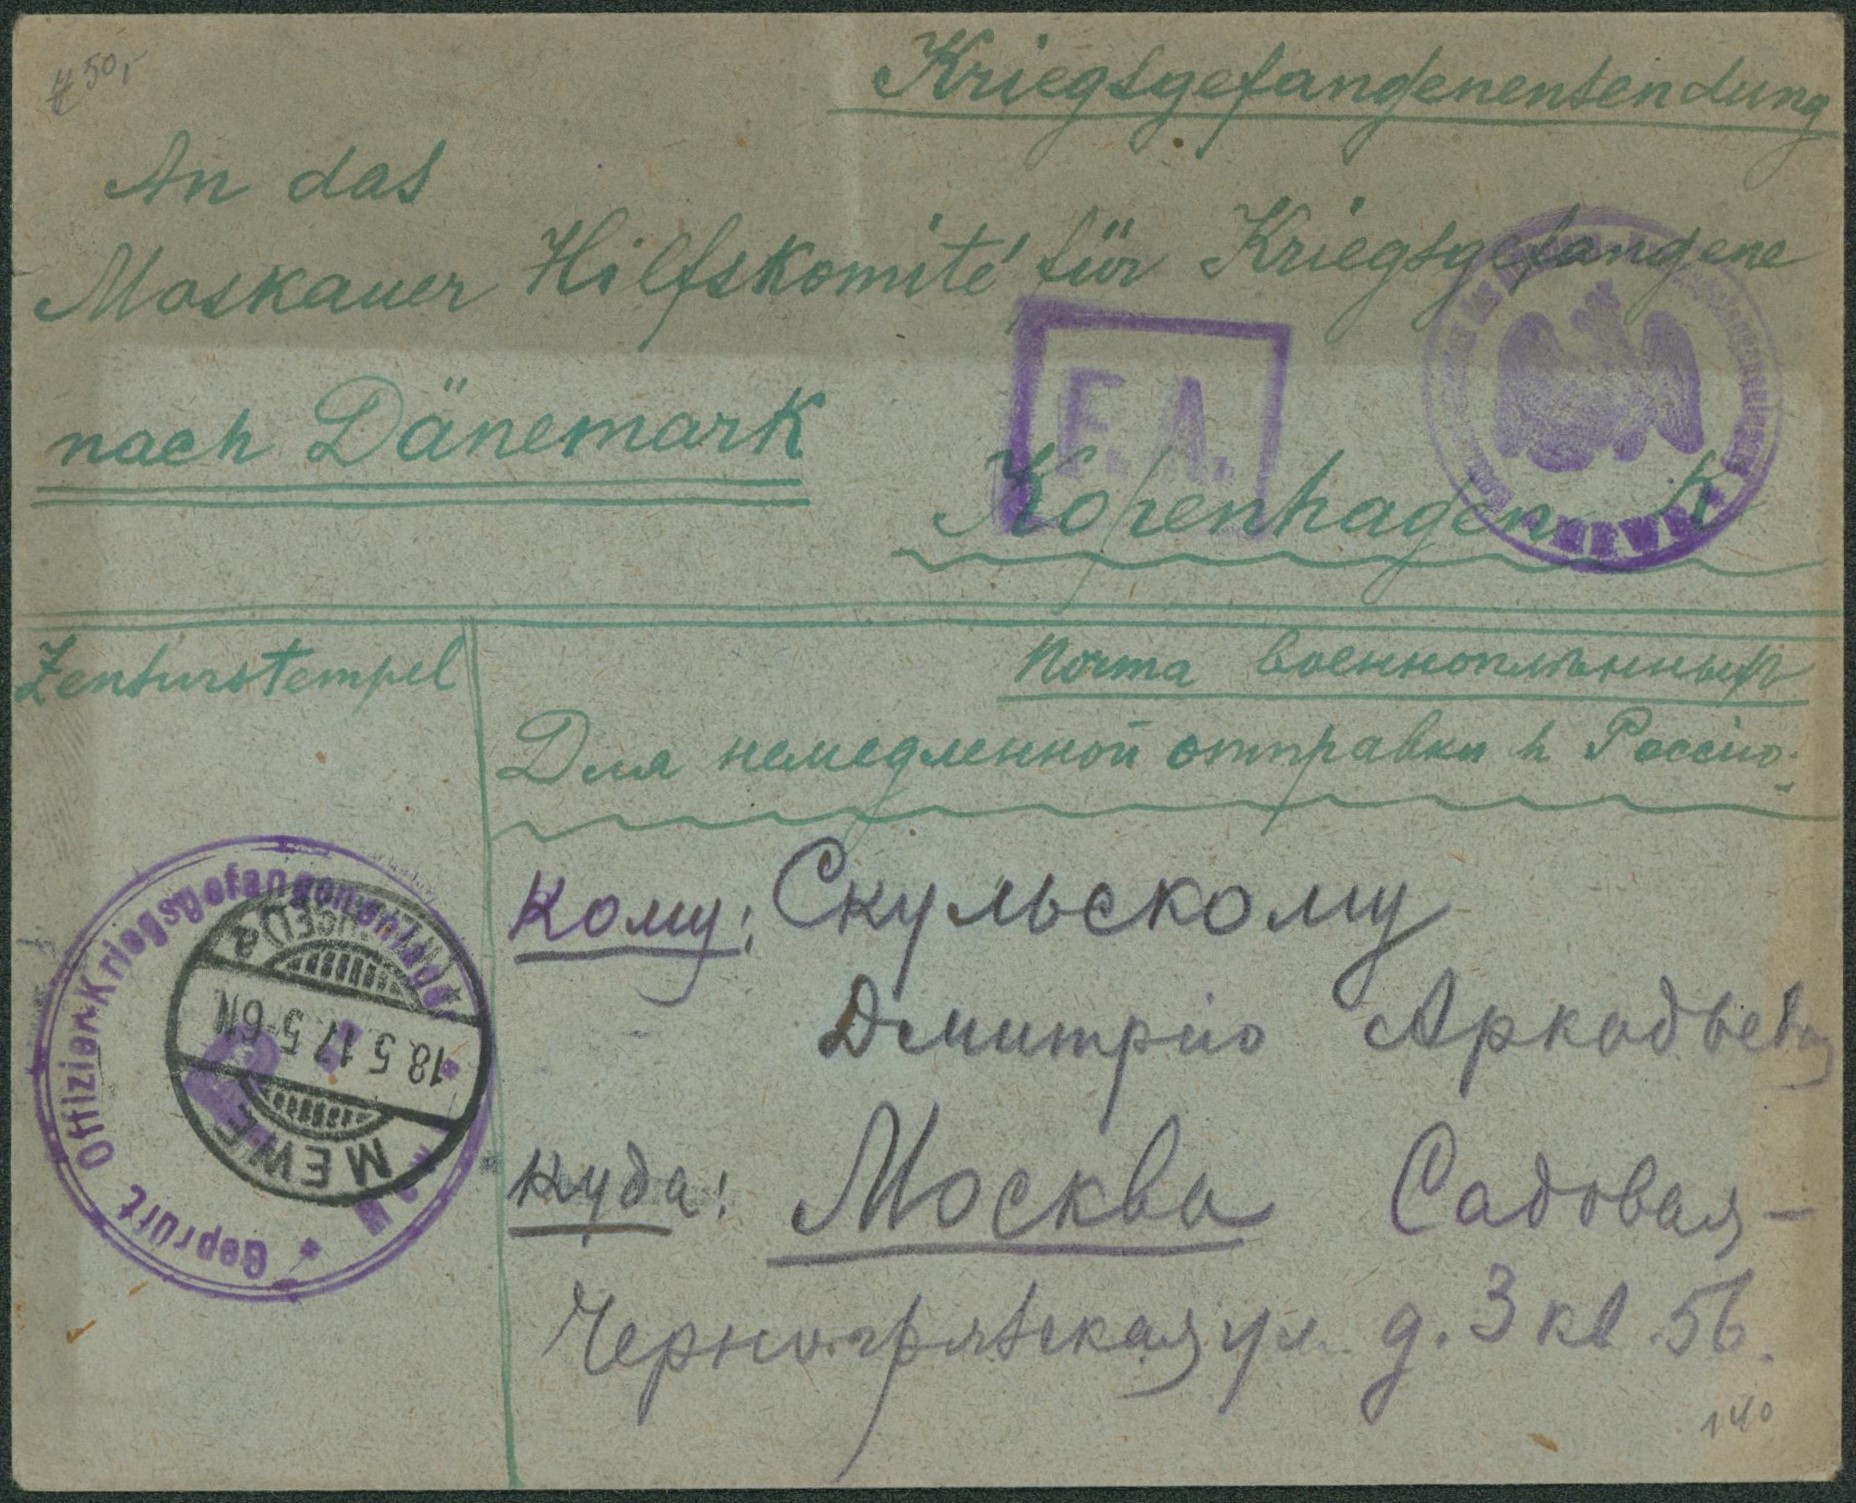 ₰ 50,-
Kriegsgefangenensendung
An das
Moskauer Hilfskomité für Kriegsgefangene
F. A.
nach Dänemark
Kopenhagen K
MEWE
Zensurstempel
Почта военноплѣнныхъ
Для немедленной отправки в Россію.
Geprüft Offizier-Kriegsgefangenenlager
MEWE
18.5.17.5-6N.
Кому: Скульскому
Дмитрію Аркадьевичу
Куда: Москва Садовая-
Черногрязская ул. д. 3 кв 56.
140